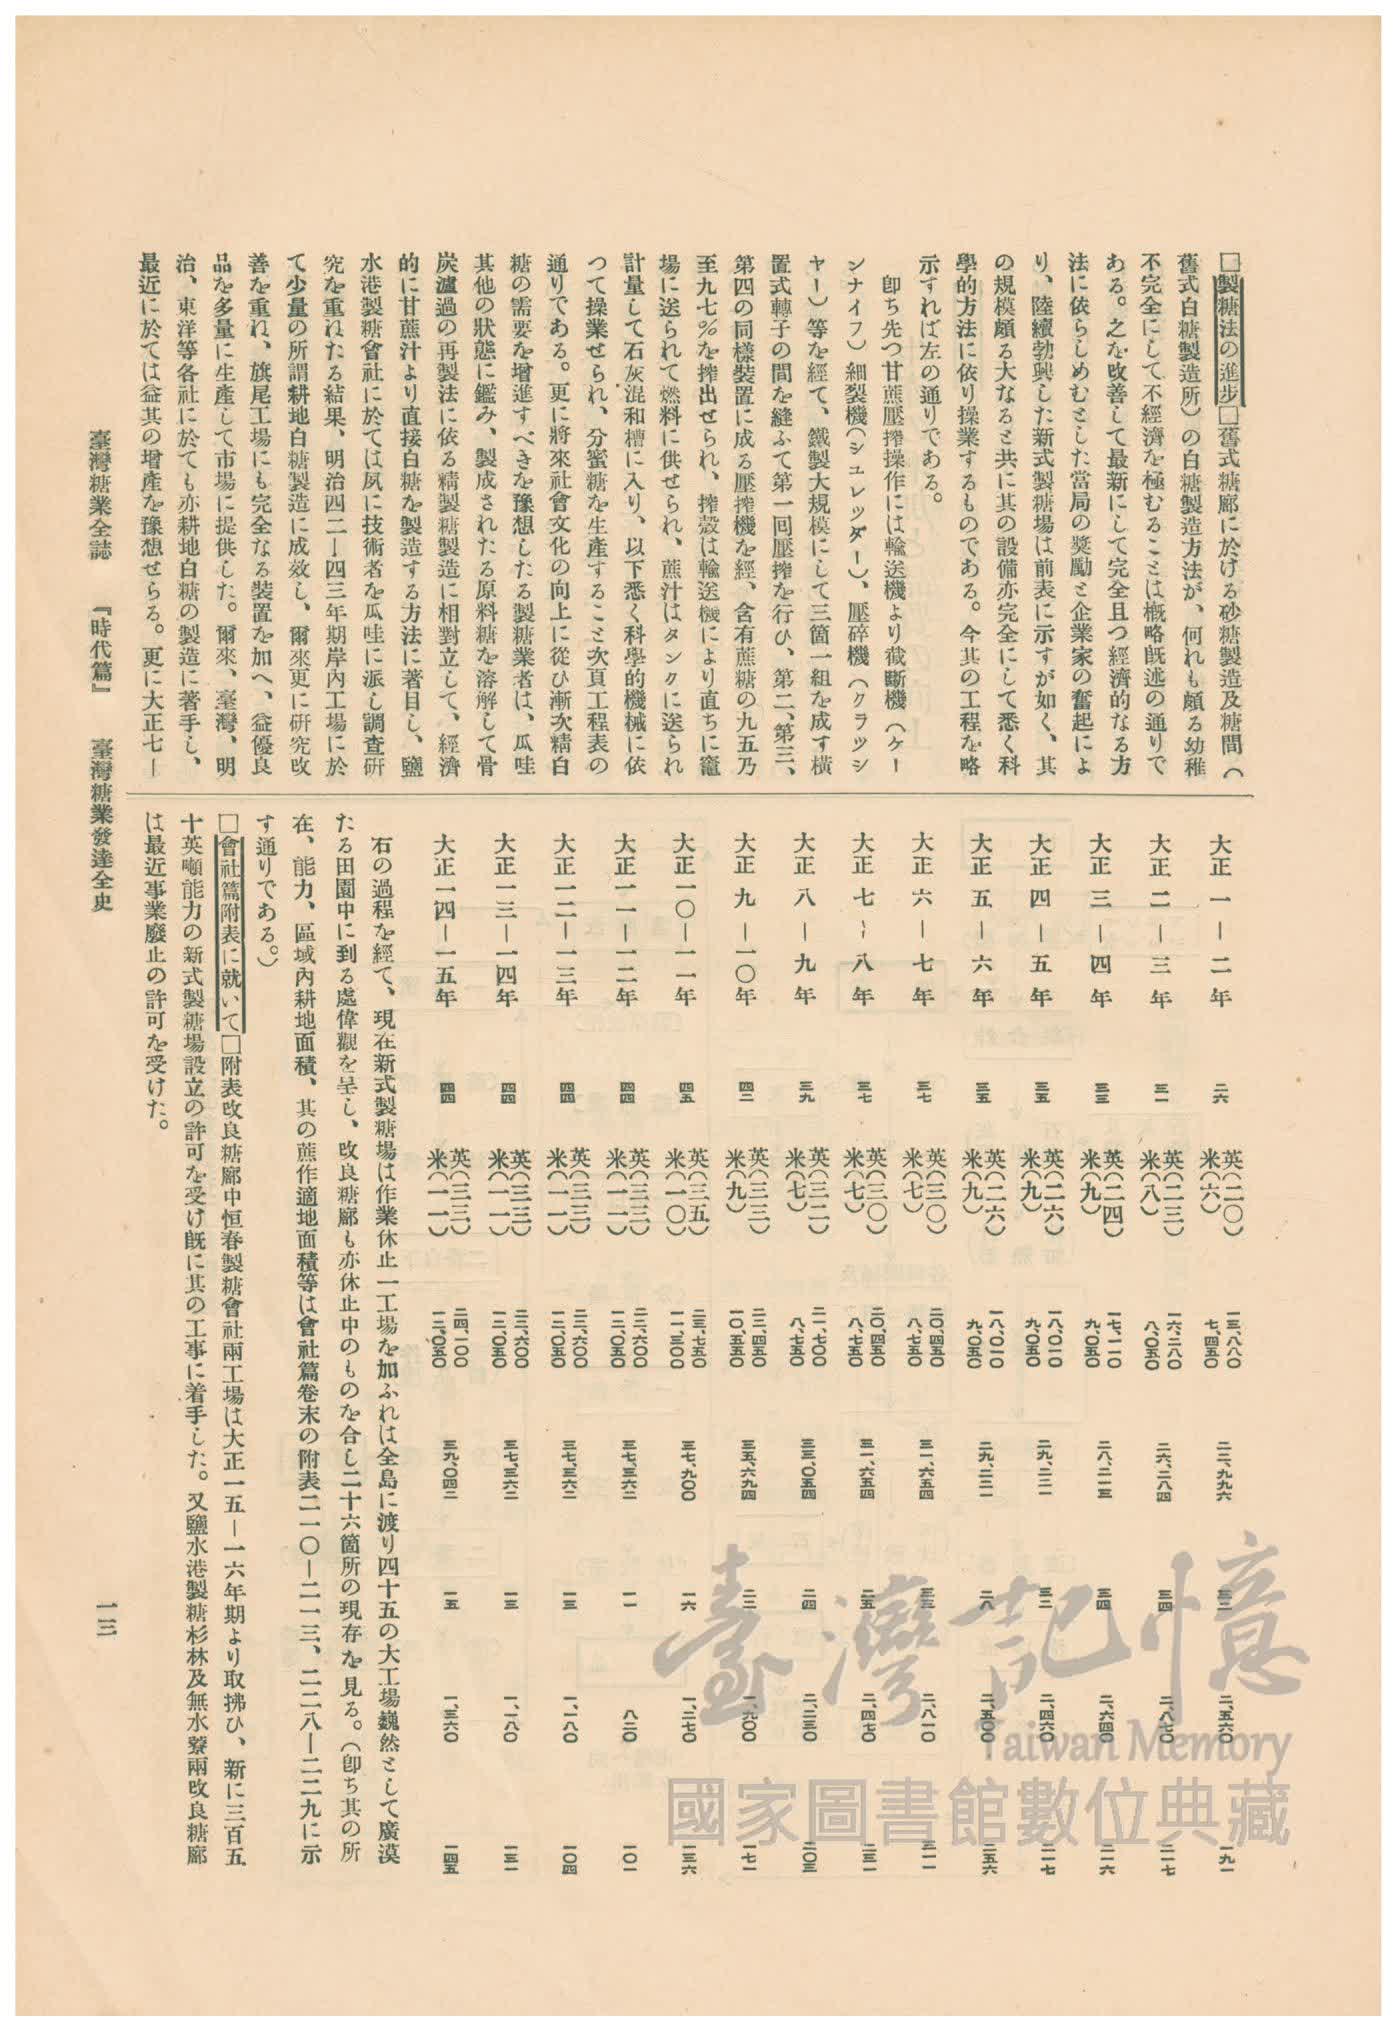 □製糖法の進步□舊式糖廍に於ける砂糖製造及糖間(
舊式白糖製造所)の白糖製造方法が、何れも頗る幼稚
不完全にして不經濟を極むることは概略既述の通りで
ある。之を改善して最新にして完全且つ經濟的なる方
法に依らしめむとした當局の奬勵と企業家の奮起によ
り、陸續勃興した新式製糖場は前表に示すが如く、其
の規模頗る大なると共に其の設備亦完全にして悉く科
學的方法に依り操業するものである。今其の工程を略
示すれば左の通りである。
卽ち先つ甘蔗壓搾操作には輸送機より截斷機(ケー
ンナイフ)細裂機(シュレッダー)、壓碎機(クラッシ
ャー)等を經て、鐵製大規模にして三箇一組を成す橫
置式轉子の間を縫ふて第一回壓搾を行ひ、第二、第三、
第四の同樣裝置に成る壓搾機を經、含有蔗糖の九五乃
至九七%を搾出せられ、搾殼は輸送機により直ちに竈
場に送られて燃料に供せられ、蔗汁はタンクに送られ
計量して石灰混和槽に入り、以下悉く科學的機械に依
つて操業せられ、分蜜糖を生產すること次頁工程表の
通りである。更に將來社會文化の向上に從ひ漸次精白
糖の需要を增進すべきを豫想したる製糖業者は、瓜哇
其他の狀態に鑑み、製成されたる原料糖を溶解して骨
炭濾過の再製法に依る精製糖製造に相對立して、經濟
的に甘蔗汁より直接白糖を製造する方法に著目し、鹽
水港製糖會社に於ては夙に技術者を瓜哇に派し調查研
究を重ねたる結果、明治四二—四三年期岸內工場に於
て少量の所謂耕地白糖製造に成效し、爾來更に硏究改
善を重ね、旗尾工場にも完全なる裝置を加へ、益優良
品を多量に生產して市場に提供した。爾來、臺灣、明
治、東洋等各社に於ても亦耕地白糖の製造に著手し、
最近に於ては益其の增產を豫想せらる。更に大正七—
大正 一—二年 二六 英(二〇)米(六) 一三、八八〇 七、四五〇 二二、九九六 三二 二、五六〇 一九一
大正 二—三年 三一 英(二三)米(八) 一六、二八〇 八、〇五〇 二六、二八四 三四 二、八七〇 二一七
大正 三—四年 三三 英(二四)米(九) 一七、一一〇 九、〇五〇 二八、二一三 三四 二、六四〇 二一六
大正 四—五年 三五 英(二六)米(九) 一八、〇一〇 九、〇五〇 二九、二二一 三二 二、四六〇 二一七
大正 五—六年 三五 英(二六)米(九) 一八、〇一〇 九、〇五〇 二九、二二一 二八 二、五〇〇 二五六
大正 六—七年 三七 英(三〇)米(七) 二〇、四五〇 八、七五〇 三一、六五四 三三 二、八一〇 二一一
大正 七—八年 三七 英(三〇)米(七) 二〇、四五〇 八、七五〇 三一、六五四 二五 二、四七〇 二三一
大正 八—九年 三九 英(三二)米(七) 二一、七〇〇 八、七五〇 三三、〇五四 二四 二、二三〇 二〇三
大正 九—一〇年 四二 英(三三)米(九) 二二、四五〇 一〇、五五〇 三五、六九四 二二 一、九〇〇 一七一
大正一〇—一一年 四五 英(三五)米(一〇) 二三、七五〇 一一、三〇〇 三七、九〇〇 一六 一、二七〇 一三六
大正一一—一二年 四四 英(三三)米(一一) 二二、六〇〇 一二、〇五〇 三七、三六二 一一 八二〇 一〇一
大正一二—一三年 四四 英(三三)米(一一) 二二、六〇〇 一二、〇五〇 三七、三六二 一三 一、一八〇 一〇四
大正一三—一四年 四四 英(三三)米(一一) 二二、六〇〇 一二、〇五〇 三七、三六二 一三 一、一八〇 一三一
大正一四—一五年 四四 英(三三)米(一一) 二四、一〇〇 一二、〇五〇 三九、〇四二 一五 一、三六〇 一四五
右の過程を經て、現在新式製糖場は作業休止一工場を加ふれは全島に渡り四十五の大工場巍然として廣漠
たる田園中に到る處偉觀を呈し、改良糖廍も亦休止中のものを合し二十六箇所の現存を見る。(卽ち其の所
在、能力、區域內耕地面積、其の蔗作適地面積等は會社篇卷末の附表二一〇—二一三、二二八—二二九に示
す通りである。)
□會社篇附表に就いて□附表改良糖廍中恒春製糖會社兩工場は大正一五—一六年期より取拂ひ、新に三百五
十英噸能力の新式製糖場設立の許可を受け既に其の工事に着手した。又鹽水港製糖杉林及無水藔兩改良糖廍
は最近事業廢止の許可を受けた。
臺灣糖業全誌 『時代篇』 臺灣糖業發達全史 一三
臺灣記憶
Taiwan Memory
國家圖書館數位典藏